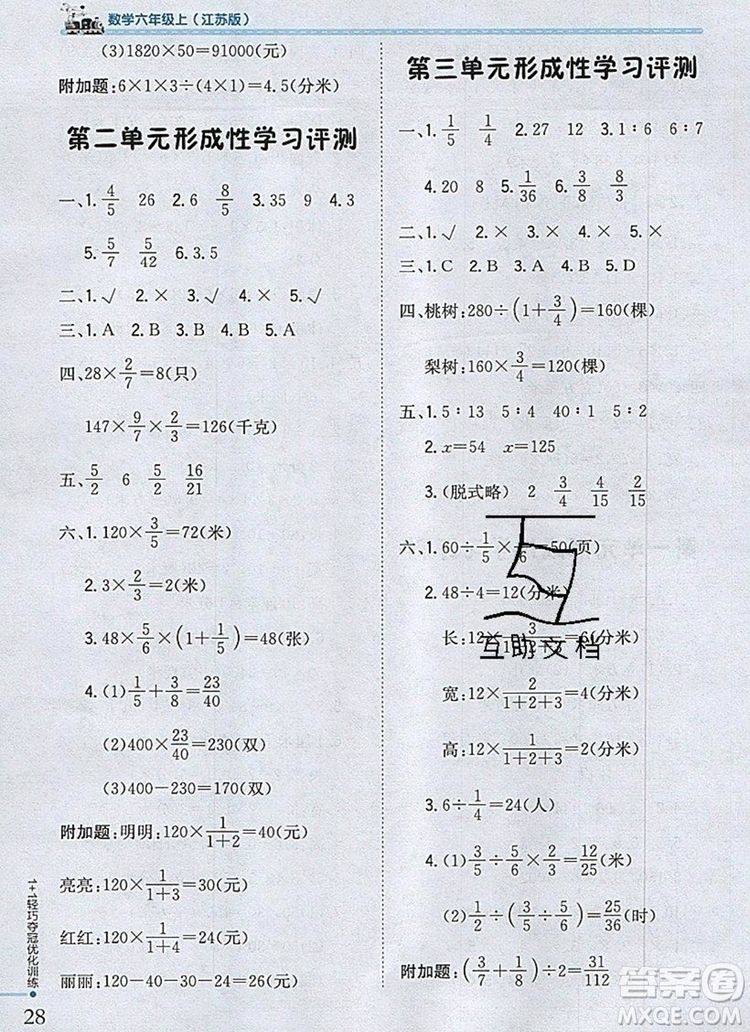 数学六年级上(江苏版)
(3)1820×50=91000(元)
附加题:6×1×3÷(4×1)=4.5(分米)
第二单元形成性学习评测
一、1. 4/5 26 2.6 8/5 3.35 9 4.3
5. 5/7 5/42 6.3.5
二、1.√ 2.× 3.× 4.× 5.√
三、1.A 2.B 3.B 4.A 5.B
四、28×2/7=8(只)
147×9/7×2/3=126(千克)
五、5/2 6 5/2 16/21
六、1.120×3/5=72(米)
2.3×2/3=2(米)
3.48×5/6×(1+1/5)=48(张)
4.(1)1/5+3/8=23/40
(2)400×23/40=230(双)
(3)400-230=170(双)
附加题:明明:120×1/(1+2)=40(元)
亮亮:120×1/(1+3)=30(元)
红红:120×1/(1+4)=24(元)
丽丽:120-40-30-24=26(元)
1+1轻巧夺冠优化训练
28
第三单元形成性学习评测
一、1. 1/5 1/4 2.27 12 3.1∶6 6∶7
4.20 8 5. 1/36 6. 5/8
二、1.√ 2.× 3.√ 4.× 5.×
三、1.C 2.B 3.A 4.B 5.D
四、桃树:280÷(1+3/4)=160(棵)
梨树:160×3/4=120(棵)
五、1.5∶13 5∶4 40∶1 5∶2
2.x=54 x=125
3.(脱式略) 2 3/4 4/15 2/15
六、1.60÷1/5×1/6=50(页)
2.48÷4=12(分米)
长:12×3/(1+2+3)=6(分米)
宽:12×2/(1+2+3)=4(分米)
高:12×1/(1+2+3)=2(分米)
3.6÷1/4=24(人)
4.(1)3/5÷5/6×5/6=3/5
(2)2/9÷(5/9÷5/6)=1/3
附加题:(3/7+1/8)÷2=31/112
互助文档
答案圈
MXQE.COM